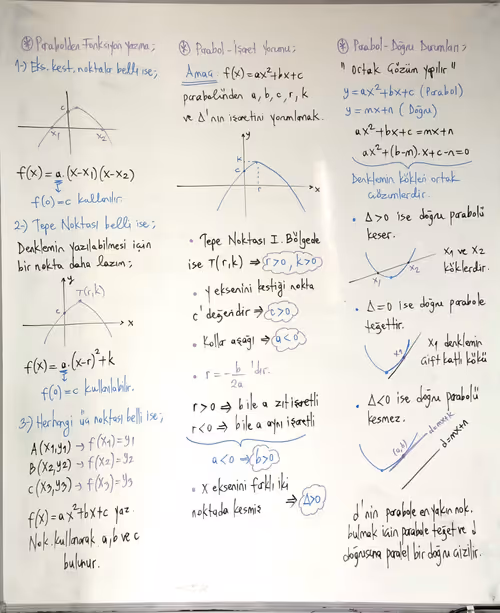 * Parabolden Fonksiyon yazma;
1-) Eks. kest. noktalar belli ise;
c
x₁
x₂
f(x) = a.(x-x₁)(x-x₂)
f(0)=c kullanılır.
2-) Tepe Noktası belli ise;
Denklemin yazılabilmesi için
bir nokta daha lazım;
y
T(r,k)
c
x
f(x) = a.(x-r)²+k
f(0)=c kullanılabilir.
3-) Herhangi üç noktası belli ise;
A(x₁,y₁) → f(x₁)=y₁
B(x₂,y₂) → f(x₂)=y₂
C(x₃,y₃) → f(x₃)=y₃
f(x)=ax²+bx+c yaz.
Nok. kullanarak a, b ve c
bulunur.
* Parabol-İşaret Yorumu;
Amaç f(x)=ax²+bx+c
parabolünden a, b, c, r, k
ve Δ'nın işaretini yorumlamak.
y
k
c
r
x
• Tepe Noktası I. Bölgede
ise T(r,k) ⇒ r>0, k>0
• y eksenini kestiği nokta
c'değeridir ⇒ c>0
• Kollar aşağı ⇒ a<0
• r = -b/2a 'dır.
r>0 ⇒ b ile a zıt işaretli
r<0 ⇒ b ile a aynı işaretli
a<0 ⇒ b>0
• x eksenini farklı iki
noktada kesmiş ⇒ Δ>0
* Parabol-Doğru Durumları;
"Ortak Çözüm yapılır"
y=ax²+bx+c (Parabol)
y=mx+n (Doğru)
ax²+bx+c=mx+n
ax²+(b-m).x+c-n=0
Denklemin kökleri ortak
çözümlerdir.
• Δ>0 ise doğru parabolü
keser.
x₁
x₂
x₁ ve x₂
köklerdir.
• Δ=0 ise doğru parabole
teğettir.
x₁
x₁ denklemin
çift katlı kökü
• Δ<0 ise doğru parabolü
kesmez.
(a,b)
d=mx+n
d'nin parabole en yakın nok.
bulmak için parabole teğet ve d
doğrusuna paralel bir doğru çizilir.